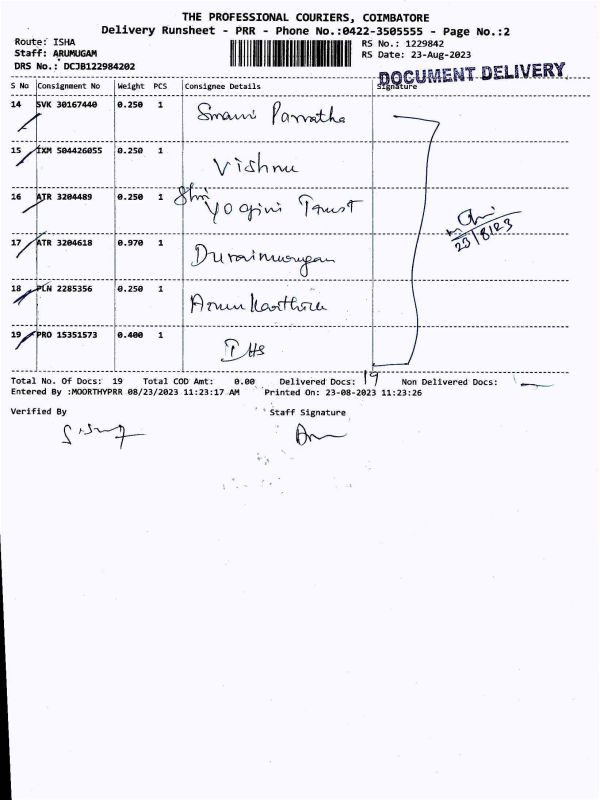 THE PROFESSIONAL COURIERS, COIMBATORE
Delivery Runsheet - PRR - Phone No.:0422-3505555 - Page No.:2
Route: ISHA
RS No.: 1229842
Staff: ARUMUGAM
RS Date: 23-Aug-2023
DRS No.: DCJB122984202
DOCUMENT DELIVERY
S No Consignment No Weight PCS Consignee Details Signature
14 SVK 30167440 0.250 1 Swami Parvatha
15 IXM 504426055 0.250 1 Vishnu
16 ATR 3204489 0.250 1 Shri Yogini Trust
17 ATR 3204618 0.970 1 Duraimurugan
23/8/23
18 PLN 2285356 0.250 1 Arun Karthick
19 PRO 15351573 0.400 1 IHS
Total No. Of Docs: 19 Total COD Amt: 0.00 Delivered Docs: 19 Non Delivered Docs:
Entered By :MOORTHYPRR 08/23/2023 11:23:17 AM Printed On: 23-08-2023 11:23:26
Verified By Staff Signature